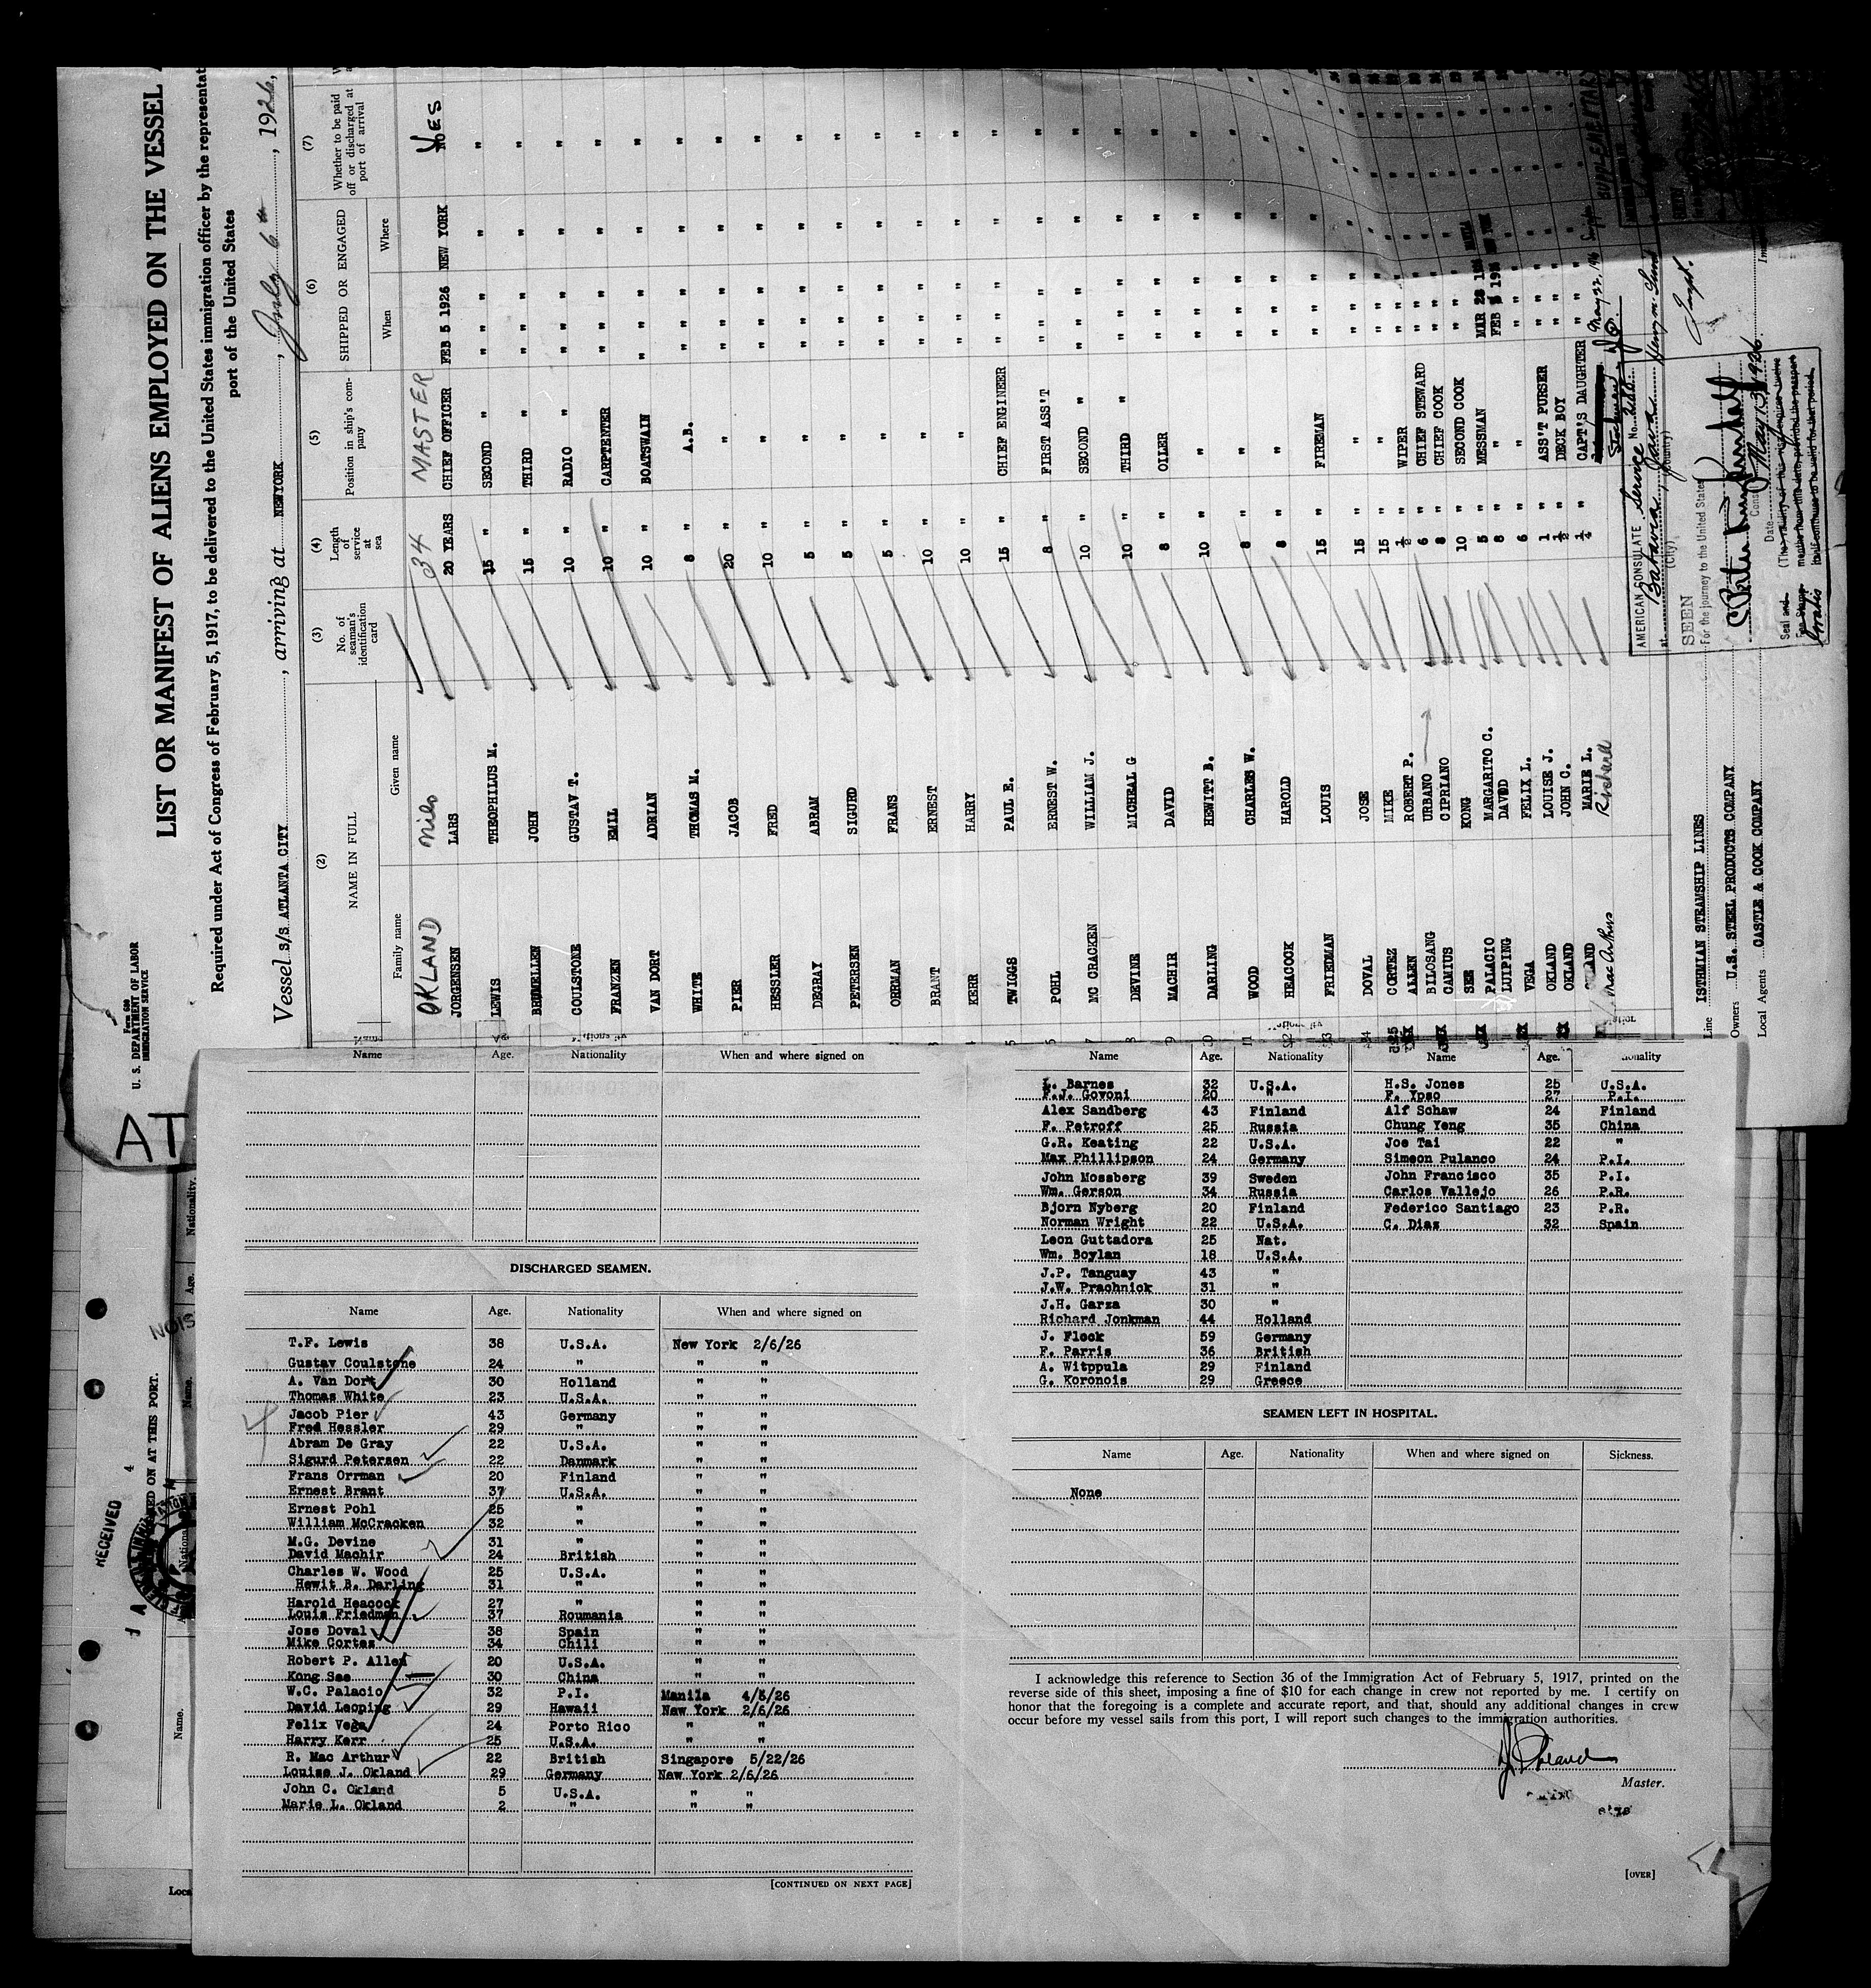 Form 680
U. S. DEPARTMENT OF LABOR
IMMIGRATION SERVICE
LIST OR MANIFEST OF ALIENS EMPLOYED ON THE VESSEL
Required under Act of Congress of February 5, 1917, to be delivered to the United States immigration officer by the representat
port of the United States
Vessel s/s ATLANTA CITY, arriving at NEWYORK, July 6th, 1926,
(2) (3) (4) (5) (6) (7)
NAME IN FULL No. of seaman's identification card Length of service at sea Position in ship's company SHIPPED OR ENGAGED Whether to be paid off or discharged at port of arrival
Family name Given name When Where
OKLAND Nils 34 MASTER
JORGENSEN LARS 20 YEARS CHIEF OFFICER FEB 5 1926 NEW YORK YES
LEWIS THEOPHILUS M. 15 " SECOND " " " " " "
BRUMELLEN JOHN 15 " THIRD " " " " " "
COULSTONE GUSTAV T. 10 " RADIO " " " " " "
FRANZEN EMIL 10 " CARPTENTER " " " " "
VAN DORT ADRIAN 10 " BOATSWAIN " " " " "
WHITE THOMAS M. 8 " A.B. " " " " "
PIER JACOB 20 " " " " " " "
HESSLER FRED 10 " " " " " " "
DEGRAY ABRAM 5 " " " " " " "
PETERSEN SIGURD 5 " " " " " " "
OHRMAN FRANS 5 " " " " " " "
BRANT ERNEST 10 " " " " " " "
KERR HARRY 10 " " " " " " "
TWIGGS PAUL E. 15 " CHIEF ENGINEER " " " " "
POHL ERNEST W. 8 " FIRST ASS'T " " " " "
MC CRACKEN WILLIAM J. 10 " SECOND " " " " " "
DEVINE MICHEAL G 10 " THIRD " " " " " "
MACHIR DAVID 8 " OILER " " " " "
DARLING HEWITT B. 10 " " " " " " "
WOOD CHARLES W. 8 " " " " " " "
HEACOCK HAROLD 8 " " " " " " "
FRIEDMAN LOUIS 15 " FIREMAN " " " " "
DOVAL JOSE 15 " " " " " "
CORTEZ MIKE 15 " " " " " "
ALLEN ROBERT P. ½ " WIPER " " " "
BILOSANG URBANO 6 " CHIEF STEWARD " " " "
CAMIUS CIPRIANO 8 " CHIEF COOK " " " "
SEE KONG 10 " SECOND COOK " " " "
PALACIO MARGARITO C. 5 " MESSMAN MAR 28 192 MANILA
LUIPING DAVID 8 " " FEB 5 192 NEW YORK
VEGA FELIX L. 6 " " " " "
OKLAND LOUISE J. 1 " ASS'T PURSER " " "
OKLAND JOHN C. ½ " DECK BOY " " "
OKLAND MARIE L. ¼ " CAPT'S DAUGHTER " " "
MacArthur Richard May 22, 1926
Line ISTHMIAN STEAMSHIP LINES
Owners U.S. STEEL PRODUCTS COMPANY
Local Agents CASTLE & COOK COMPANY
AMERICAN CONSULATE Service No.
at Batavia, Java
(City) (Country)
SEEN
For the journey to the United States
Date May 13, 1926
Seal and
Fee Stamp
(The validity of this visa expires twelve
months from this date, provided the passport
itself continues to be valid for that period.
Gratis
AT
RECEIVED
SIGNED ON AT THIS PORT.
Name. Age. Nationality.
Name Age. Nationality When and where signed on
DISCHARGED SEAMEN.
Name Age. Nationality When and where signed on
T.F. Lewis 38 U.S.A. New York 2/6/26
Gustav Coulstone 24 " " "
A. Van Dort 30 Holland " "
Thomas White 23 U.S.A. " "
Jacob Pier 43 Germany " "
Fred Hessler 29 " " "
Abram De Gray 22 U.S.A. " "
Sigurd Petersen 22 Danmark " "
Frans Orrman 20 Finland " "
Ernest Brant 37 U.S.A. " "
Ernest Pohl 25 " " "
William McCracken 32 " " "
M.G. Devine 31 " " "
David Machir 24 British " "
Charles W. Wood 25 U.S.A. " "
Hewit B. Darling 31 " " "
Harold Heacock 27 " " "
Louis Friedman 37 Roumania " "
Jose Doval 38 Spain " "
Mike Cortez 34 Chili " "
Robert P. Allen 20 U.S.A. " "
Kong See 30 China " "
W.C. Palacio 32 P.I. Manila 4/5/26
David Leoping 29 Hawaii New York 2/6/26
Felix Vega 24 Porto Rico " "
Harry Kerr 25 U.S.A. " "
R. Mac Arthur 22 British Singapore 5/22/26
Louise J. Okland 29 Germany New York 2/6/26
John C. Okland 5 U.S.A. " "
Marie L. Okland 2 " " "
[CONTINUED ON NEXT PAGE]
Name Age. Nationality Name Age. Nationality
L. Barnes 32 U.S.A. H.S. Jones 25 U.S.A.
F.J. Govoni 20 " F. Ypso 27 P.I.
Alex Sandberg 43 Finland Alf Sohaw 24 Finland
F. Petroff 25 Russia Chung Yeng 35 China
G.R. Keating 22 U.S.A. Joe Tai 22 "
Max Phillipson 24 Germany Simeon Pulanco 24 P.I.
John Mossberg 39 Sweden John Francisco 35 P.I.
Wm. Gerson 34 Russia Carlos Vallejo 26 P.R.
Bjorn Nyberg 20 Finland Federico Santiago 23 P.R.
Norman Wright 22 U.S.A. C. Diaz 32 Spain
Leon Guttadora 25 Nat.
Wm. Boylan 18 U.S.A.
J.P. Tanguay 43 "
J.W. Prachnick 31 "
J.H. Garza 30 "
Richard Jonkman 44 Holland
J. Fleck 59 Germany
F. Parris 36 British
A. Witppula 29 Finland
G. Koronois 29 Greece
SEAMEN LEFT IN HOSPITAL.
Name Age. Nationality When and where signed on Sickness.
None
I acknowledge this reference to Section 36 of the Immigration Act of February 5, 1917, printed on the
reverse side of this sheet, imposing a fine of $10 for each change in crew not reported by me. I certify on
honor that the foregoing is a complete and accurate report, and that, should any additional changes in crew
occur before my vessel sails from this port, I will report such changes to the immigration authorities.
Master.
[OVER]